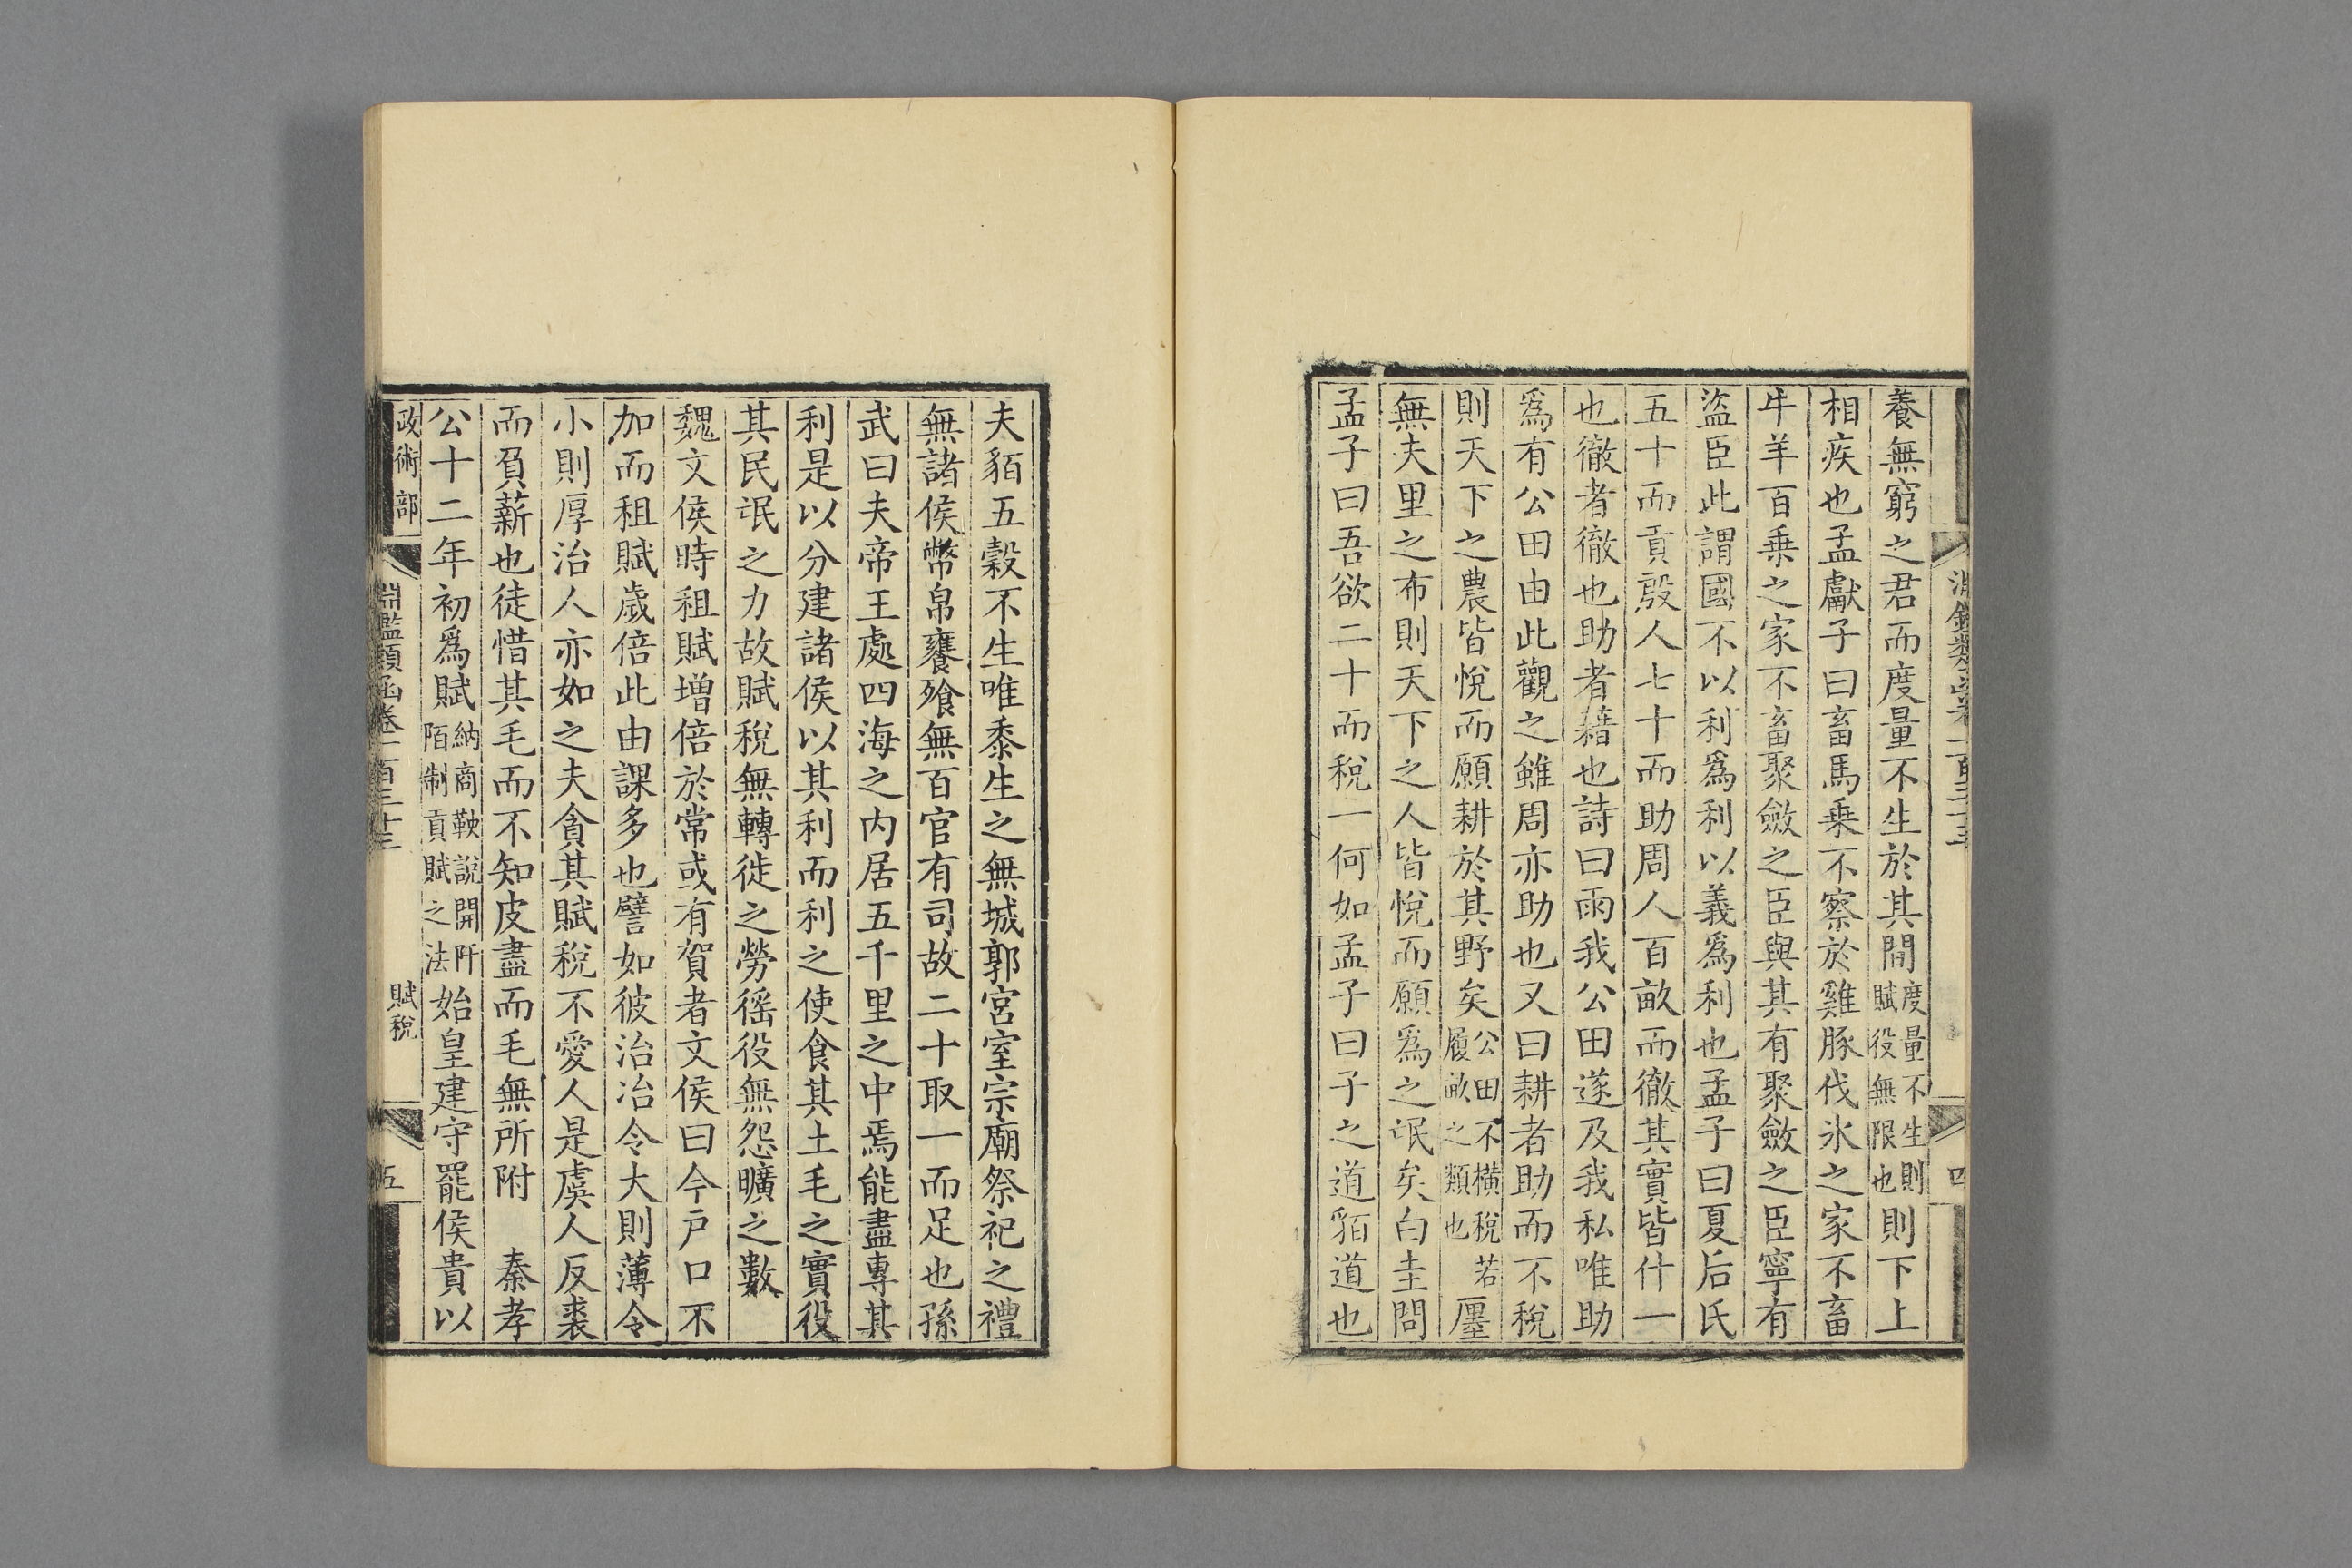 養無窮之君而度量不生於其間度量不生則賦役無限也則下上
相疾也孟獻子曰畜馬乗不察於雞豚伐氷之家不畜
牛羊百乗之家不畜聚斂之臣與其有聚斂之臣寧有
盜臣此謂國不以利爲利以義爲利也孟子曰夏后氏
五十而貢殷人七十而助周人百畝而徹其實皆什一
也徹者徹也助者藉也詩曰雨我公田遂及我私唯助
爲有公田由此觀之雖周亦助也又曰耕者助而不稅
則天下之農皆悅而願耕於其野矣公田不橫稅若履畝之類也廛
無夫里之布則天下之人皆悅而願爲之氓矣白圭問
孟子曰吾欲二十而稅一何如孟子曰子之道貊道也
夫貊五穀不生唯黍生之無城郭宮室宗廟祭祀之禮
無諸侯幣帛饔飱無百官有司故二十取一而足也孫
武曰夫帝王處四海之内居五千里之中焉能盡專其
利是以分建諸侯以其利而利之使食其土毛之實役
其民氓之力故賦稅無轉徙之勞徭役無怨曠之歎
魏文侯時租賦增倍於常或有賀者文侯曰今戸口不
加而租賦歲倍此由課多也譬如彼治冶令大則薄令
小則厚治人亦如之夫貪其賦稅不愛人是虞人反裘
而負薪也徒惜其毛而不知皮盡而毛無所附 秦孝
公十二年初爲賦納商鞅說開阡陌制貢賦之法始皇建守罷侯貴以
政術部 淵鑑類函卷一百三十三 賦稅 五